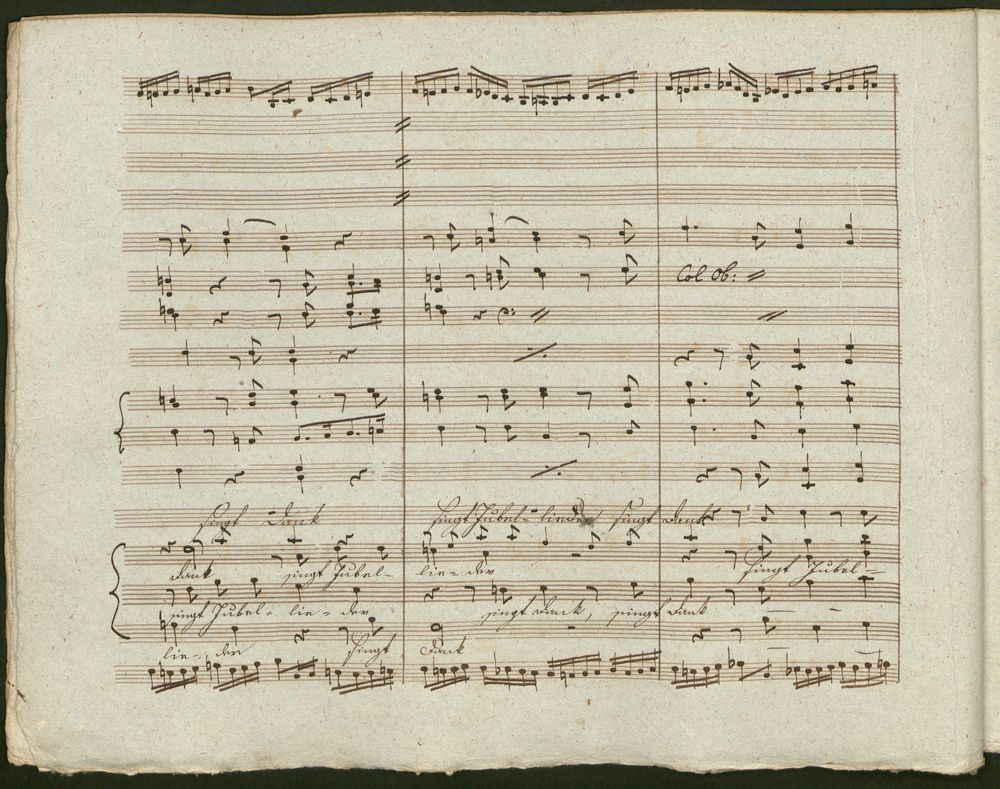 Col Ob:
singt Dank singt Jubel- lieder singt Dank
Dank singt Jubel- lie- der singt Jubel-
singt Jubel- lie- der singt Dank, singt Dank
lie- der singt Dank